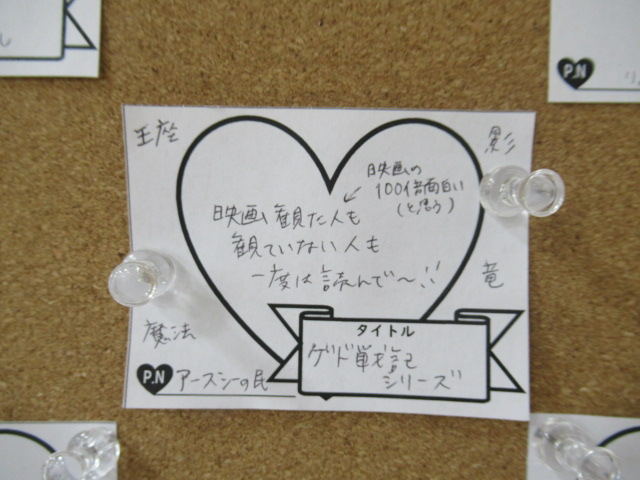 王座
影
映画の
100倍面白い
(と思う)
映画観た人も
観ていない人も
一度は読んで〜!!
竜
魔法
タイトル
ゲド戦記
シリーズ
P.N アースシーの民
P.N